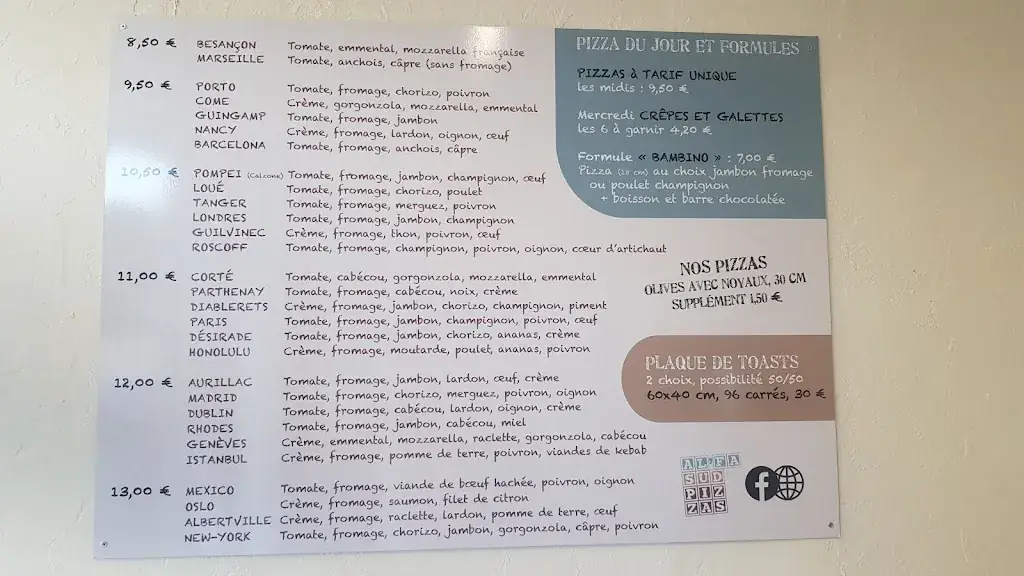 8,50 € BESANÇON Tomate, emmental, mozzarella française
MARSEILLE Tomate, anchois, câpre (sans fromage)
9,50 € PORTO Tomate, fromage, chorizo, poivron
COME Crème, gorgonzola, mozzarella, emmental
GUINGAMP Tomate, fromage, jambon
NANCY Crème, fromage, lardon, oignon, œuf
BARCELONA Tomate, fromage, anchois, câpre
10,50 € POMPEI (Calzone) Tomate, fromage, jambon, champignon, œuf
LOUÉ Tomate, fromage, chorizo, poulet
TANGER Tomate, fromage, merguez, poivron
LONDRES Tomate, fromage, jambon, champignon
GUILVINEC Crème, fromage, thon, poivron, œuf
ROSCOFF Tomate, fromage, champignon, poivron, oignon, cœur d'artichaut
11,00 € CORTÉ Tomate, cabécou, gorgonzola, mozzarella, emmental
PARTHENAY Tomate, fromage, cabécou, noix, crème
DIABLERETS Crème, fromage, jambon, chorizo, champignon, piment
PARIS Tomate, fromage, jambon, champignon, poivron, œuf
DÉSIRADE Tomate, fromage, jambon, chorizo, ananas, crème
HONOLULU Crème, fromage, moutarde, poulet, ananas, poivron
12,00 € AURILLAC Tomate, fromage, jambon, lardon, œuf, crème
MADRID Tomate, fromage, chorizo, merguez, poivron, oignon
DUBLIN Tomate, fromage, cabécou, lardon, oignon, crème
RHODES Tomate, fromage, jambon, cabécou, miel
GENÈVES Crème, emmental, mozzarella, raclette, gorgonzola, cabécou
ISTANBUL Crème, fromage, pomme de terre, poivron, viandes de kebab
13,00 € MEXICO Tomate, fromage, viande de bœuf hachée, poivron, oignon
OSLO Crème, fromage, saumon, filet de citron
ALBERTVILLE Crème, fromage, raclette, lardon, pomme de terre, œuf
NEW-YORK Tomate, fromage, chorizo, jambon, gorgonzola, câpre, poivron
PIZZA DU JOUR ET FORMULES
PIZZAS à TARIF UNIQUE
les midis : 9,50 €
Mercredi CRÊPES ET GALETTES
les 6 à garnir 4,20 €
Formule « BAMBINO » : 7,00 €
Pizza (18 cm) au choix jambon fromage
ou poulet champignon
+ boisson et barre chocolatée
NOS PIZZAS
OLIVES AVEC NOYAUX, 30 CM
SUPPLÉMENT 1,50 €
PLAQUE DE TOASTS
2 choix, possibilité 50/50
60x40 cm, 96 carrés, 30 €
AL'FA
SUD
PIZ
ZAS
f